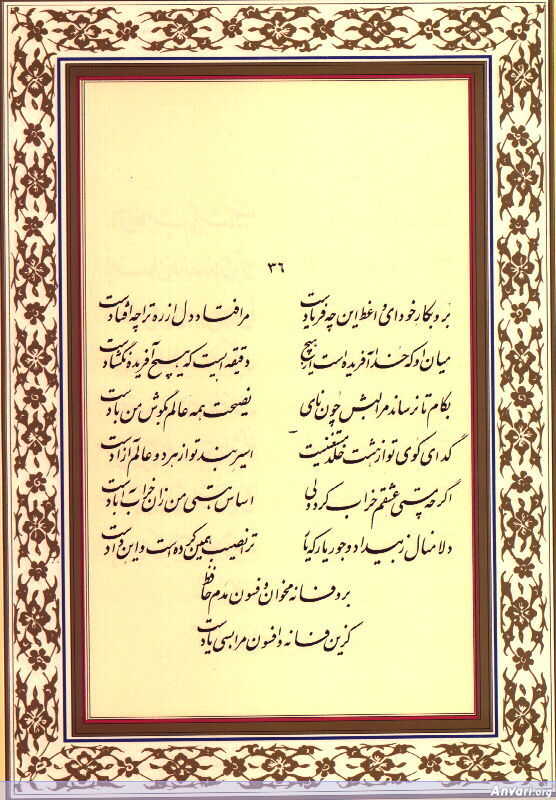 ۳۶
برو بکار خود ای واعظ این چه فریادست مرا فتاد دل از ره ترا چه افتادست
میان او که خدا آفریده است از هیچ دقیقه ایست که هیچ آفریده نگشادست
بکام تا نرساند مرا لبش چون نای نصیحت همه عالم بگوش من بادست
گدای کوی تو از هشت خلد مستغنیست اسیر بند تو از هر دو عالم آزادست
اگرچه مستی عشقم خراب کرد ولی اساس هستی من زان خراب آبادست
دلا منال ز بیداد و جور یار که یار ترا نصیب همین کرده است و این دادست
برو فسانه مخوان و فسون مدم حافظ
کزین فسانه و افسون مرا بسی یادست
Anvari.org